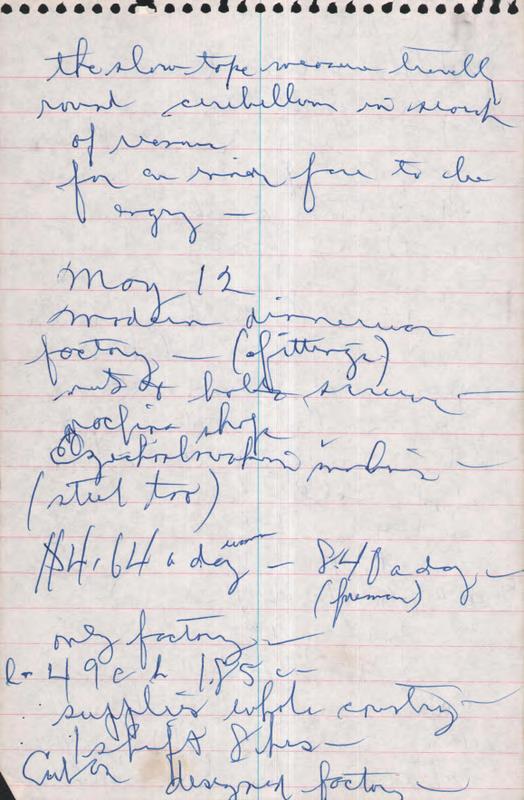 the slow tape measure travelly
round cerebellum in search
of reason
for an inner face to be
angry —
May 12
modern
factory — (fittings)
nuts & bolts, screws —
machine shop
Czechoslovakian machines —
(steel too)
$4.64 a day — 8.40 a day —
(foreman)
only factory —
49c 1.85 —
supplies whole country —
1 shift 8 hrs —
Cuban designed factory —